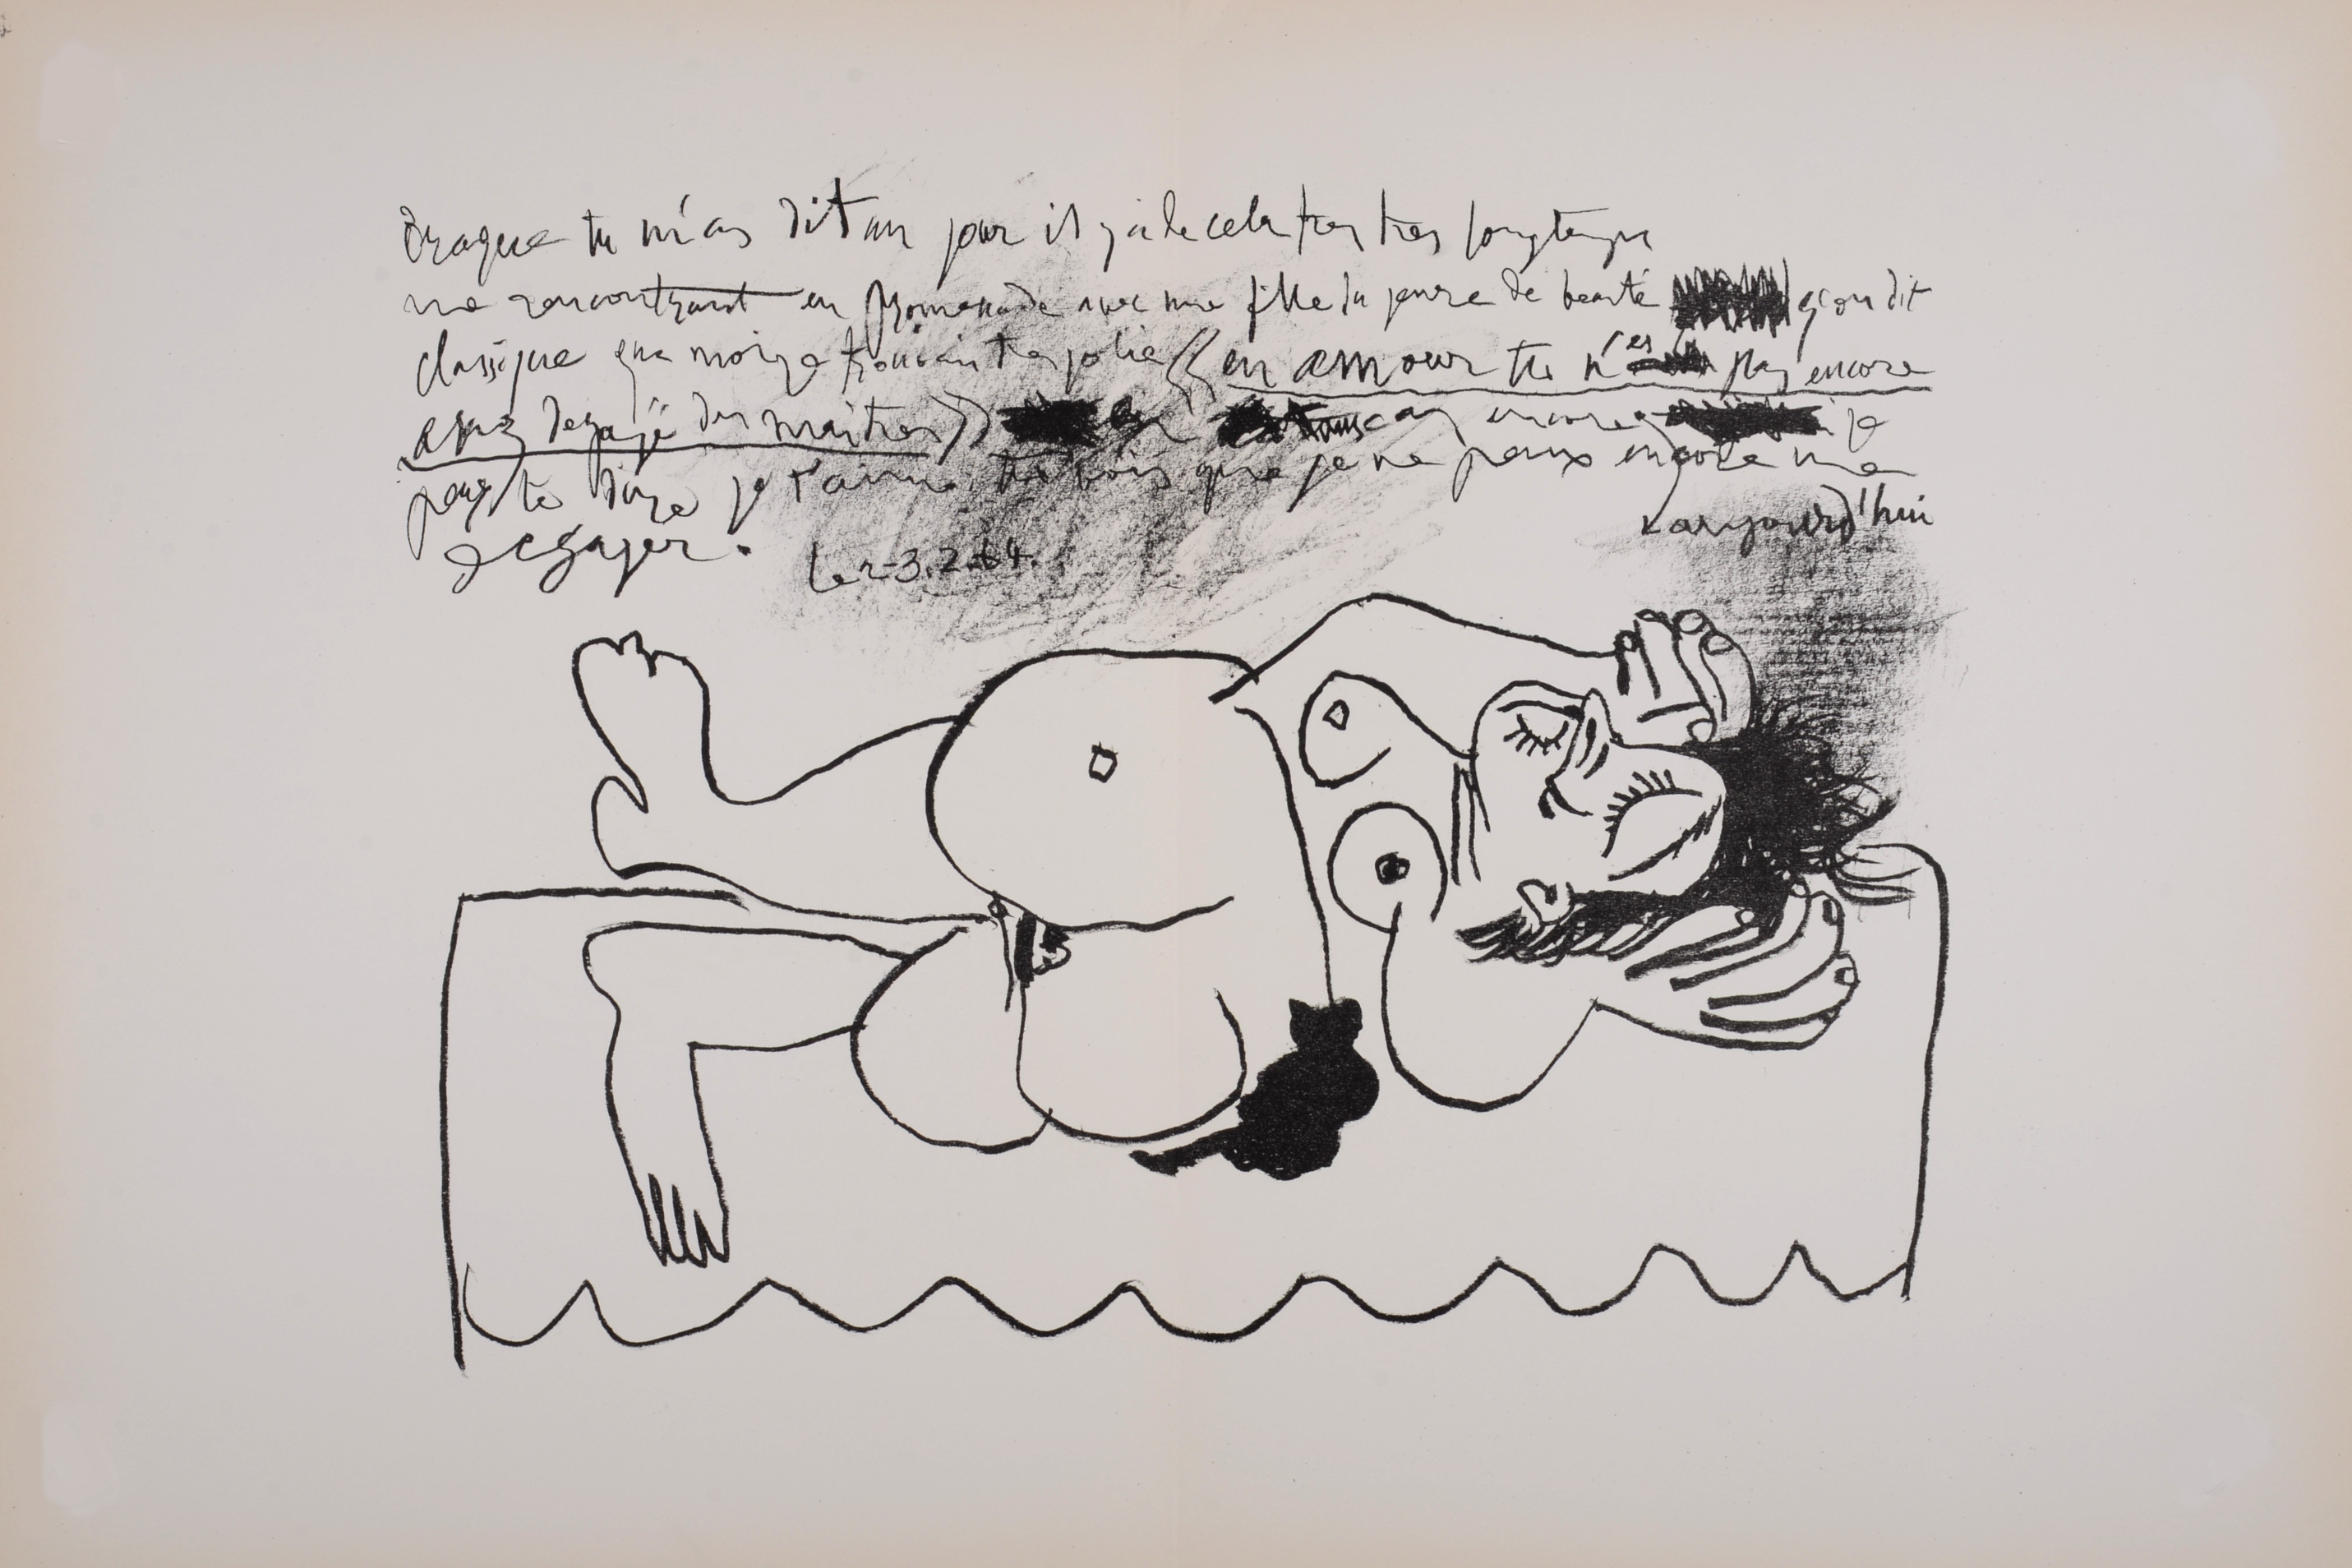 Braque tu m'as dit un jour il y a de cela tres tres longtemps
me rencontrant en promenade avec une fille du genre de beauté q'on dit
classique que moi je trouvais tres jolie « en amour tu n'es pas encore
assez degagé des maitres » en tous cas encore je
peux te dire je t'aime tu vois que je ne peux encore me
aujourd'hui
degager.
le 23.2.64.